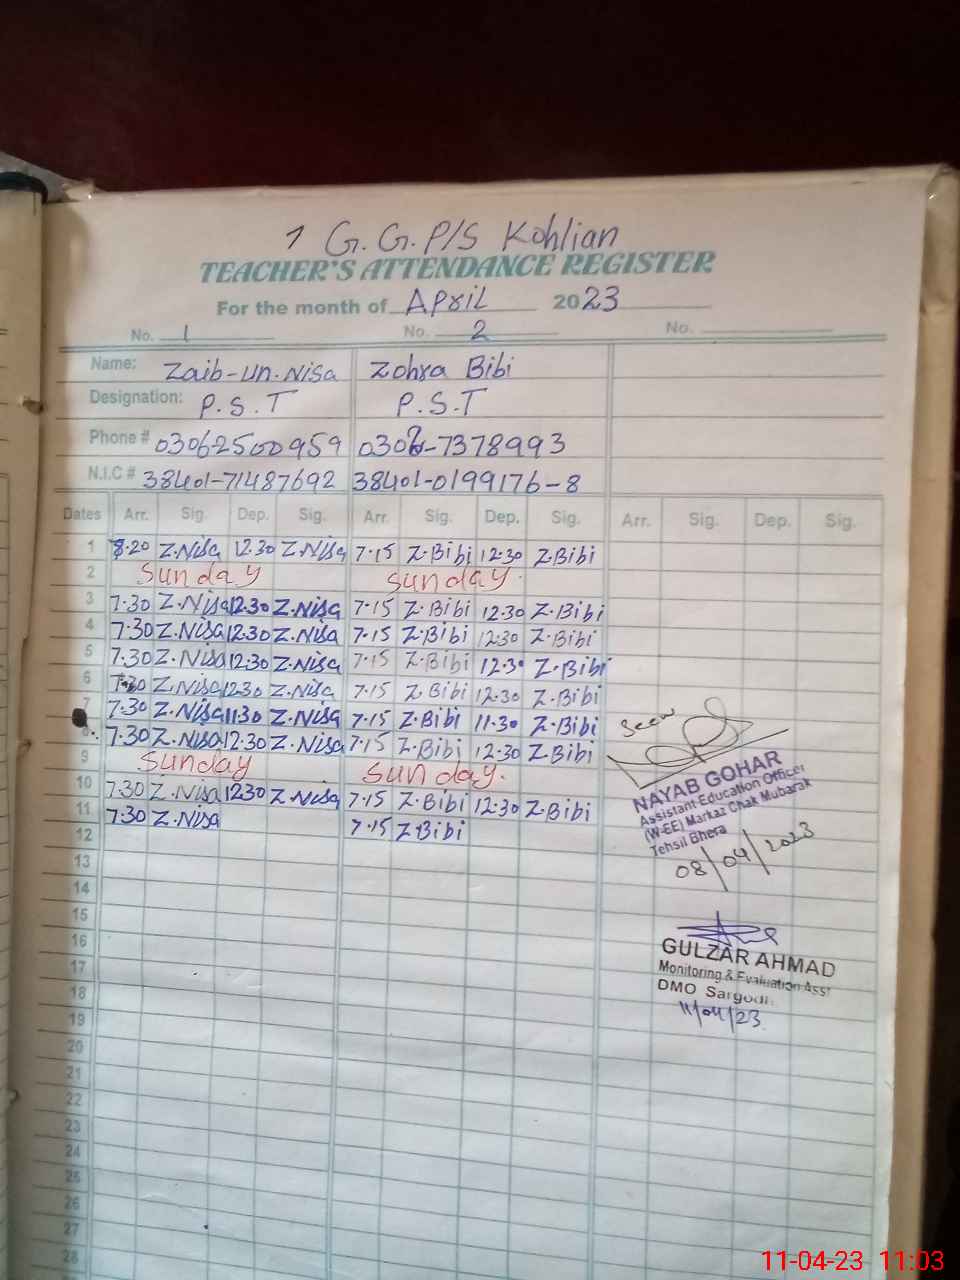 1 G. G. P/S Kohlian
TEACHER'S ATTENDANCE REGISTER
For the month of April 2023
No. 1 No. 2 No.
Name: Zaib-un-Nisa Zohra Bibi
Designation: P.S.T P.S.T
Phone # 03062500959 0306-7378993
N.I.C # 38401-71487692 38401-0199176-8
Dates Arr. Sig. Dep. Sig. Arr. Sig. Dep. Sig. Arr. Sig. Dep. Sig.
1 8.20 Z.Nisa 12.30 Z.Nisa 7.15 Z.Bibi 12:30 Z.Bibi
2 Sunday Sunday.
3 7.30 Z.Nisa 12.30 Z.Nisa 7.15 Z.Bibi 12.30 Z.Bibi
4 7.30 Z.Nisa 12.30 Z.Nisa 7.15 Z.Bibi 12.30 Z.Bibi
5 7.30 Z.Nisa 12.30 Z.Nisa 7.15 Z.Bibi 12.30 Z.Bibi
6 7.30 Z.Nisa 12.30 Z.Nisa 7.15 Z.Bibi 12.30 Z.Bibi
7 7.30 Z.Nisa 11.30 Z.Nisa 7.15 Z.Bibi 11.30 Z.Bibi
8 7.30 Z.Nisa 12.30 Z.Nisa 7.15 Z.Bibi 12.30 Z.Bibi
9 Sunday Sunday.
10 7.30 Z.Nisa 12.30 Z.Nisa 7.15 Z.Bibi 12.30 Z.Bibi
11 7.30 Z.Nisa 7.15 Z.Bibi
12
13
14
15
16
17
18
19
20
21
22
23
24
25
26
27
28
Seen
NAYAB GOHAR
Assistant Education Officer
(W-EE) Markaz Chak Mubarak
Tehsil Bhera
08/04/2023
GULZAR AHMAD
Monitoring & Evaluation Asst
DMO Sargodh
11/04/23
11-04-23 11:03